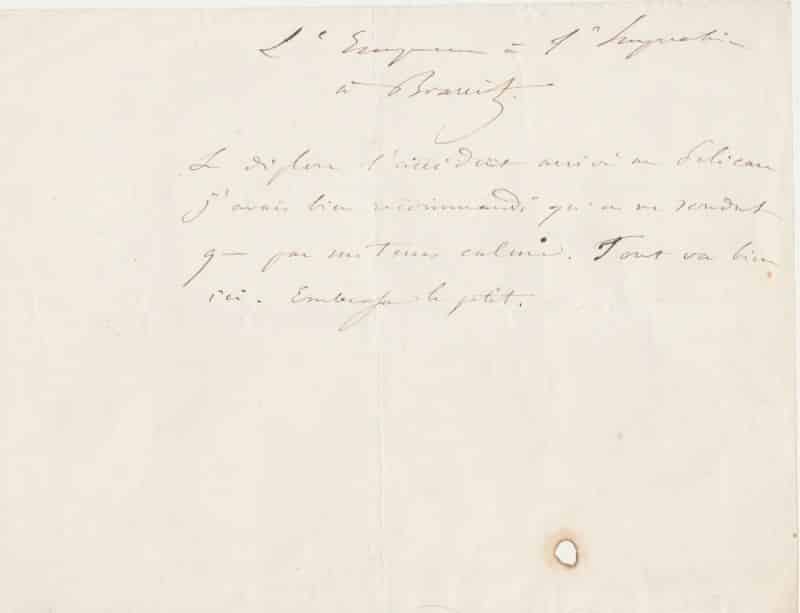 L'Empereur à l'Impératrice
à Biarritz.
Je déplore l'accident arrivé au Pelican
j'avais bien recommandé qu'on ne sondat
que par un temps calme. Tout va bien
ici. Embrasse le petit.